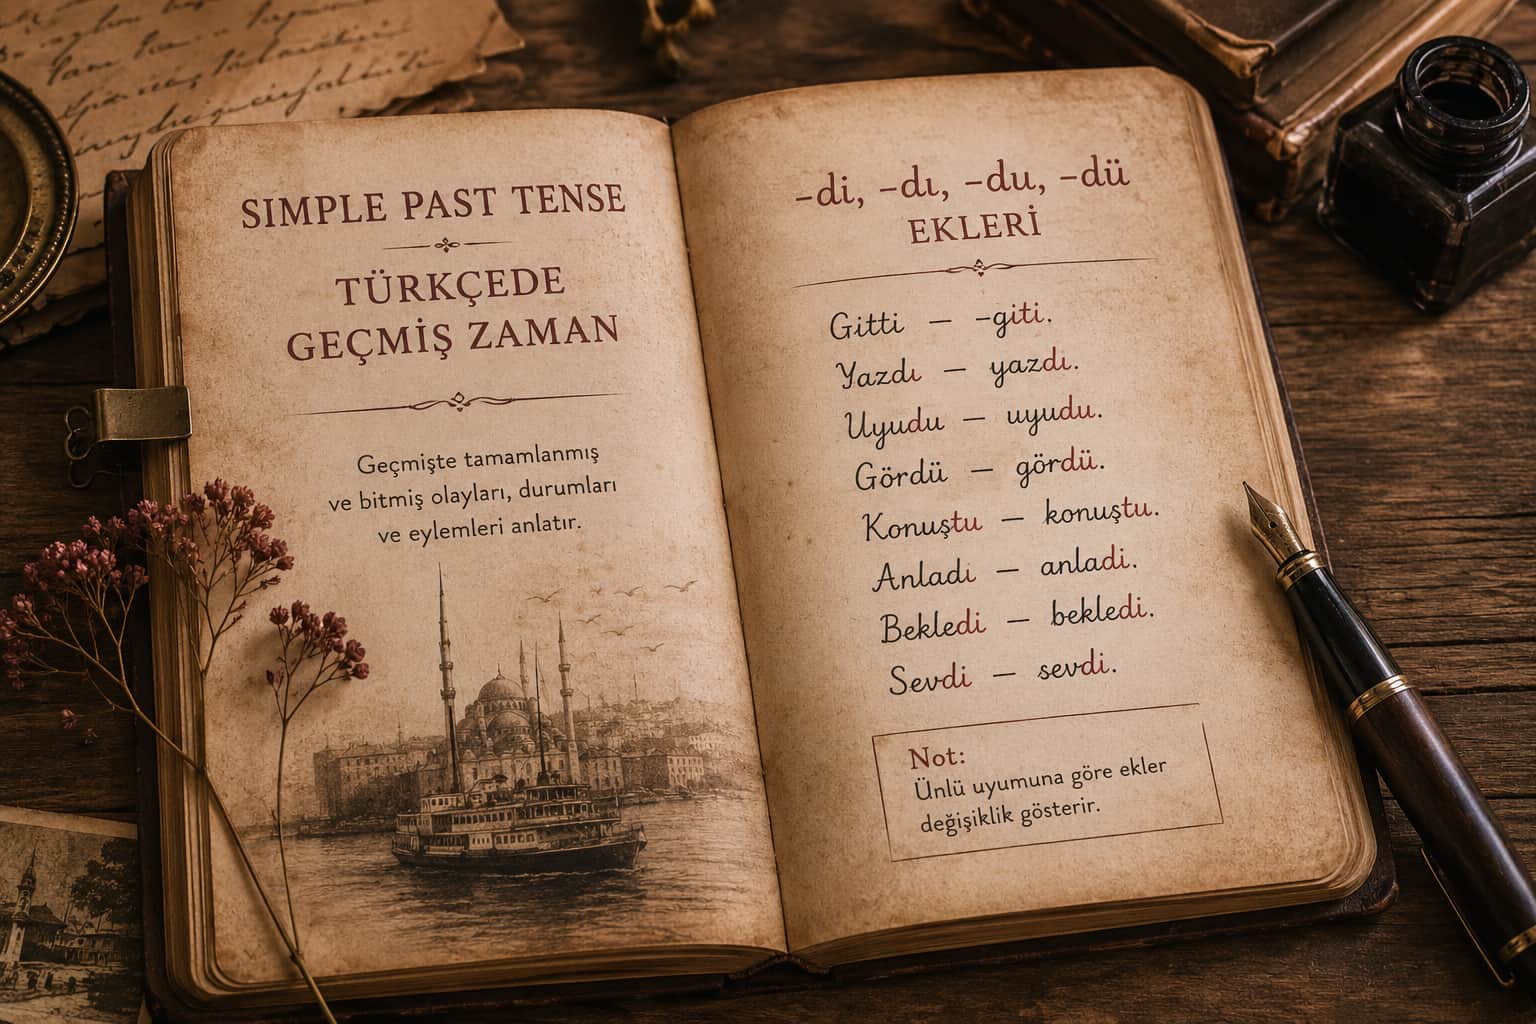 SIMPLE PAST TENSE
TÜRKÇEDE
GEÇMİŞ ZAMAN
Geçmişte tamamlanmış
ve bitmiş olayları, durumları
ve eylemleri anlatır.
-di, -dı, -du, -dü
EKLERİ
Gitti — -giti.
Yazdı — yazdı.
Uyudu — uyudu.
Gördü — gördü.
Konuştu — konuştu.
Anladi — anladi.
Bekledi — bekledi.
Sevdi — sevdi.
Not:
Ünlü uyumuna göre ekler
değişiklik gösterir.